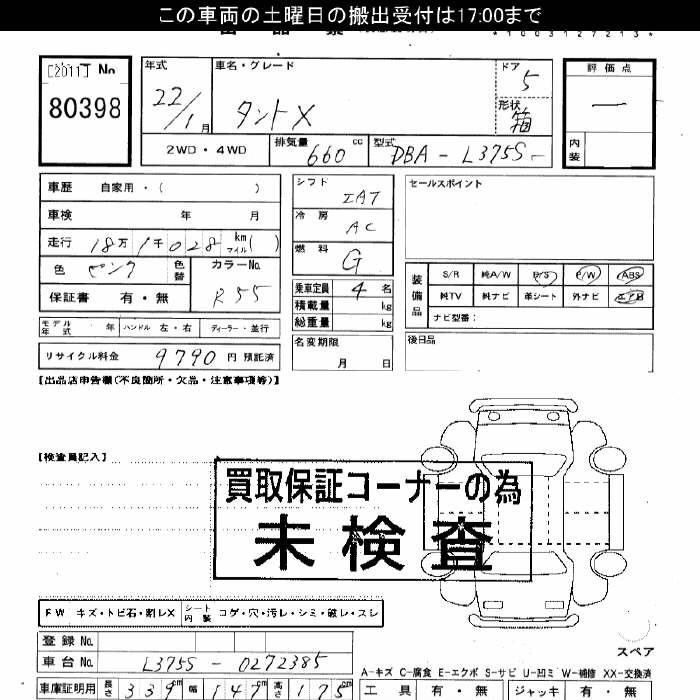 この車両の土曜日の搬出受付は17:00まで
*1003127213*
[2011] No
80398
年式 22/1月
車名・グレード タントX
ドア 5
形状 箱
評価点 —
内装
2WD・4WD
排気量 660 cc
型式 DBA - L375S -
車歴 自家用・( )
車検 年 月
走行 18万1千028 km マイル ( )
色 ピンク 色替 カラーNo. R55
保証書 有・無
モデル年式 年 ハンドル 左・右 ディーラー・並行
リサイクル料金 9790 円 預託済
シフト IAT
冷房 AC
燃料 G
乗車定員 4 名
積載量 kg
総重量 kg
名変期限 月 日
セールスポイント
装備品 S/R 純A/W P/S P/W ABS
純TV 純ナビ 革シート 外ナビ エアB
ナビ型番:
後日品
【出品店申告欄(不良箇所・欠品・注意事項等)】
【検査員記入】
買取保証コーナーの為
未検査
FW キズ・トビ石・割レX シート内装 コゲ・穴・汚レ・シミ・破レ・スレ
登録 No.
車台 No. L375S - 0272385
車庫証明用 長さ 339cm 幅 147cm 高さ 175cm
スペア
A-キズ C-腐食 E-エクボ S-サビ U-凹ミ W-補修 XX-交換済
工具 有・無 ジャッキ 有・無